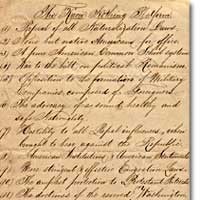 The Know Nothing Platform
(1) Repeal of all Naturalization Laws.
(2) None but native Americans for office.
(3) A pure American Common School system.
(4) War to the hilt, on political Romanism.
(5) Opposition to the formation of Military
Companies, composed of Foreigners.
(6) The advocacy of a sound, healthy and
safe Nationality.
(7) Hostility to all Papal influences, when
brought to bear against the Republic.
(8) American Institutions & American Sentiments.
(9) More stringent & effective Emigration Laws.
(10) The amplest protection to Protestant Interests.
(11) The doctrines of the revered Washington